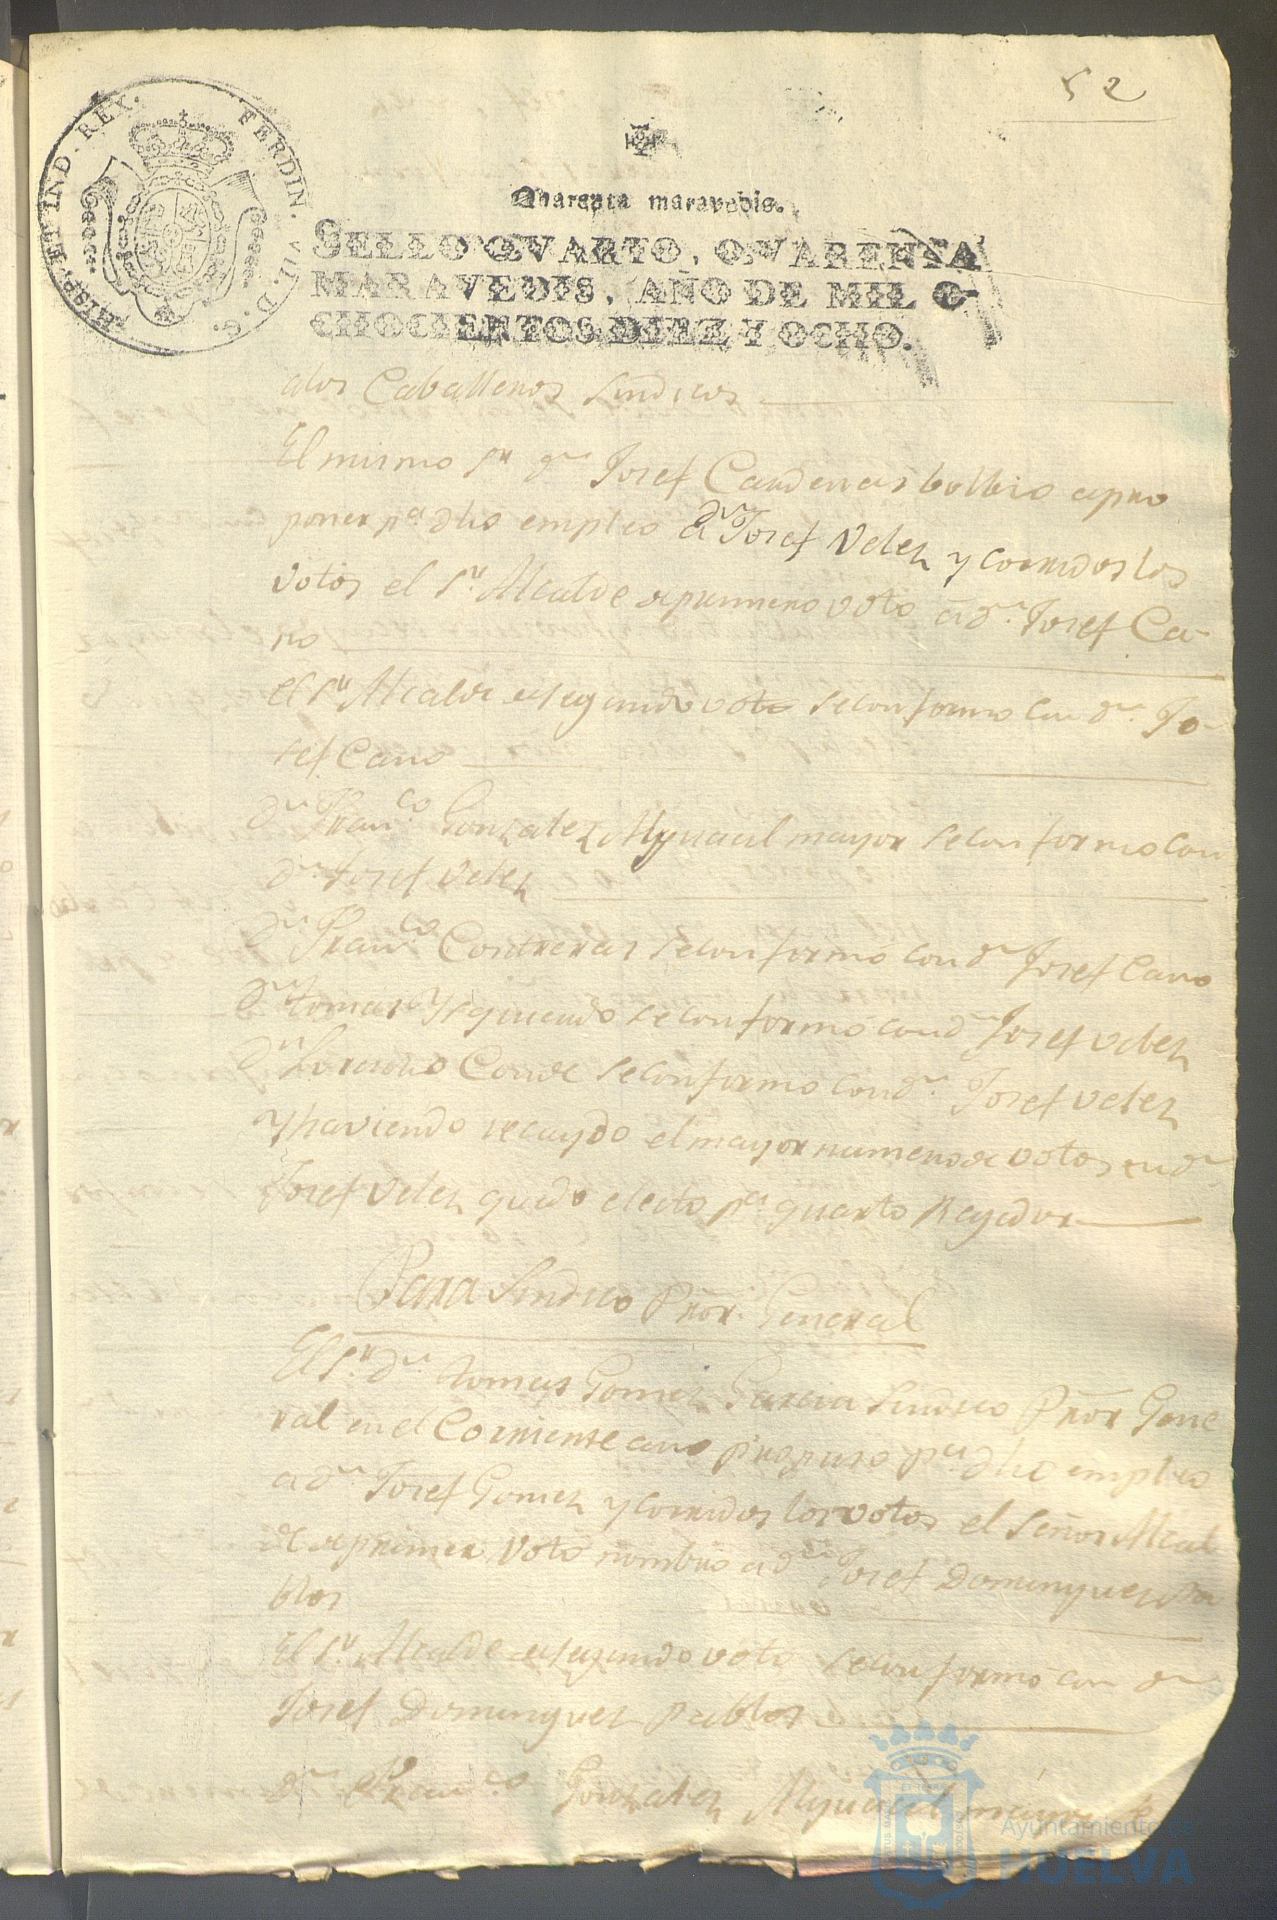 52
HISP. ET IND. REX. FERDIN. VII. D. G.
Quarenta maravedis.
SELLO QVARTO, QVARENTA
MARAVEDIS, AÑO DE MIL O-
CHOCIENTOS DIEZ Y OCHO.
a los Caballeros Sindicos
El mismo Sr. Dn. Josef Cardenas bolbio a pro
poner pa. dho empleo a Dn. Josef Velez y corridos los
votos el Sr. Alcalde de primero voto a Dn. Josef Ca-
no
el Sr. Alcalde de segundo voto se conformo con Dn. Jo-
sef Cano
Dn. Franco. Gonzalez Alguacil mayor se conformo con
Dn. Josef Velez
Dn. Franco. Contreras se conformó con Dn. Josef Cano
Dn. Tomas Ysquierdo se conformó con Dn. Josef Velez
Dn. Lorenzo Conde se conformo con Dn. Josef Velez
y haviendo recaydo el mayor numero de votos en Dn.
Josef Velez quedo electo pa. quarto Regidor
Para Sindico Prōr. General
El Sr. Dn. Tomas Gomez Garcia Sindico Prōr Gene
ral en el Corriente año propuso pa. dho empleo
a Dn. Josef Gomez y corridos los votos el Señor Alcal
de de primer voto nombro a Dn. Josef Dominguez Pa
blos
El Sr. Alcalde de segundo voto se conformó con Dn
Josef Dominguez Pablos
Dn. Franco. Gonzalez Alguacil mayor se
Ayuntamiento de
HUELVA